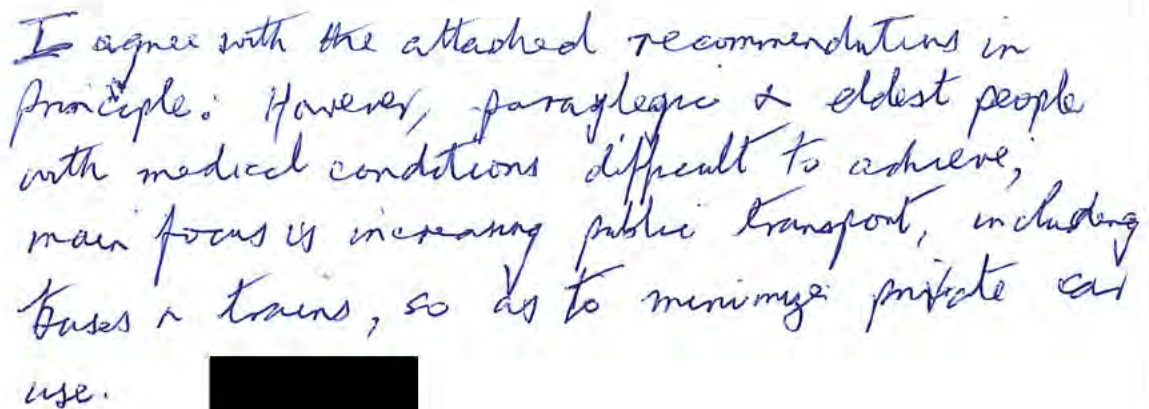 I agree with the attached recommendations in
principle. However, paraglegic & eldest people
with medical conditions difficult to achieve,
main focus is increasing public transport, including
buses & trains, so as to minimize private car
use.